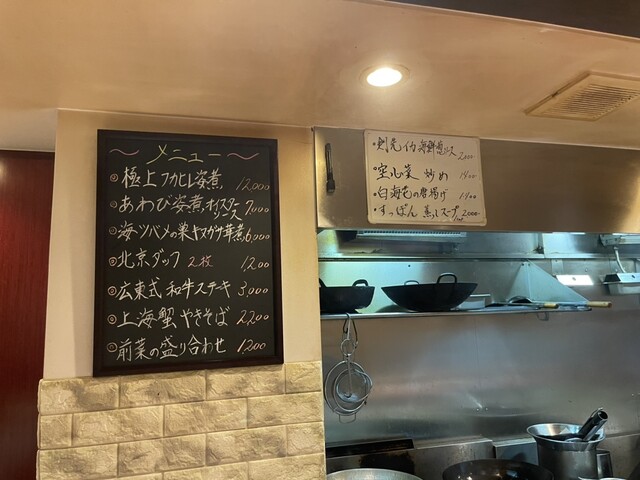 〜メニュー〜
極上フカヒレ姿煮 12,000
あわび姿煮 オイスターソース 7,000
海ツバメの巣 キヌガサ茸煮 6,000
北京ダック 2枚 1,200
広東式 和牛ステキ 3,000
上海蟹 やきそば 2,200
前菜の盛り合わせ 1,200
・ソース 2200-
・空心菜 炒め
・白海老の唐揚げ
・すっぽん 蒸しスープ 2000-